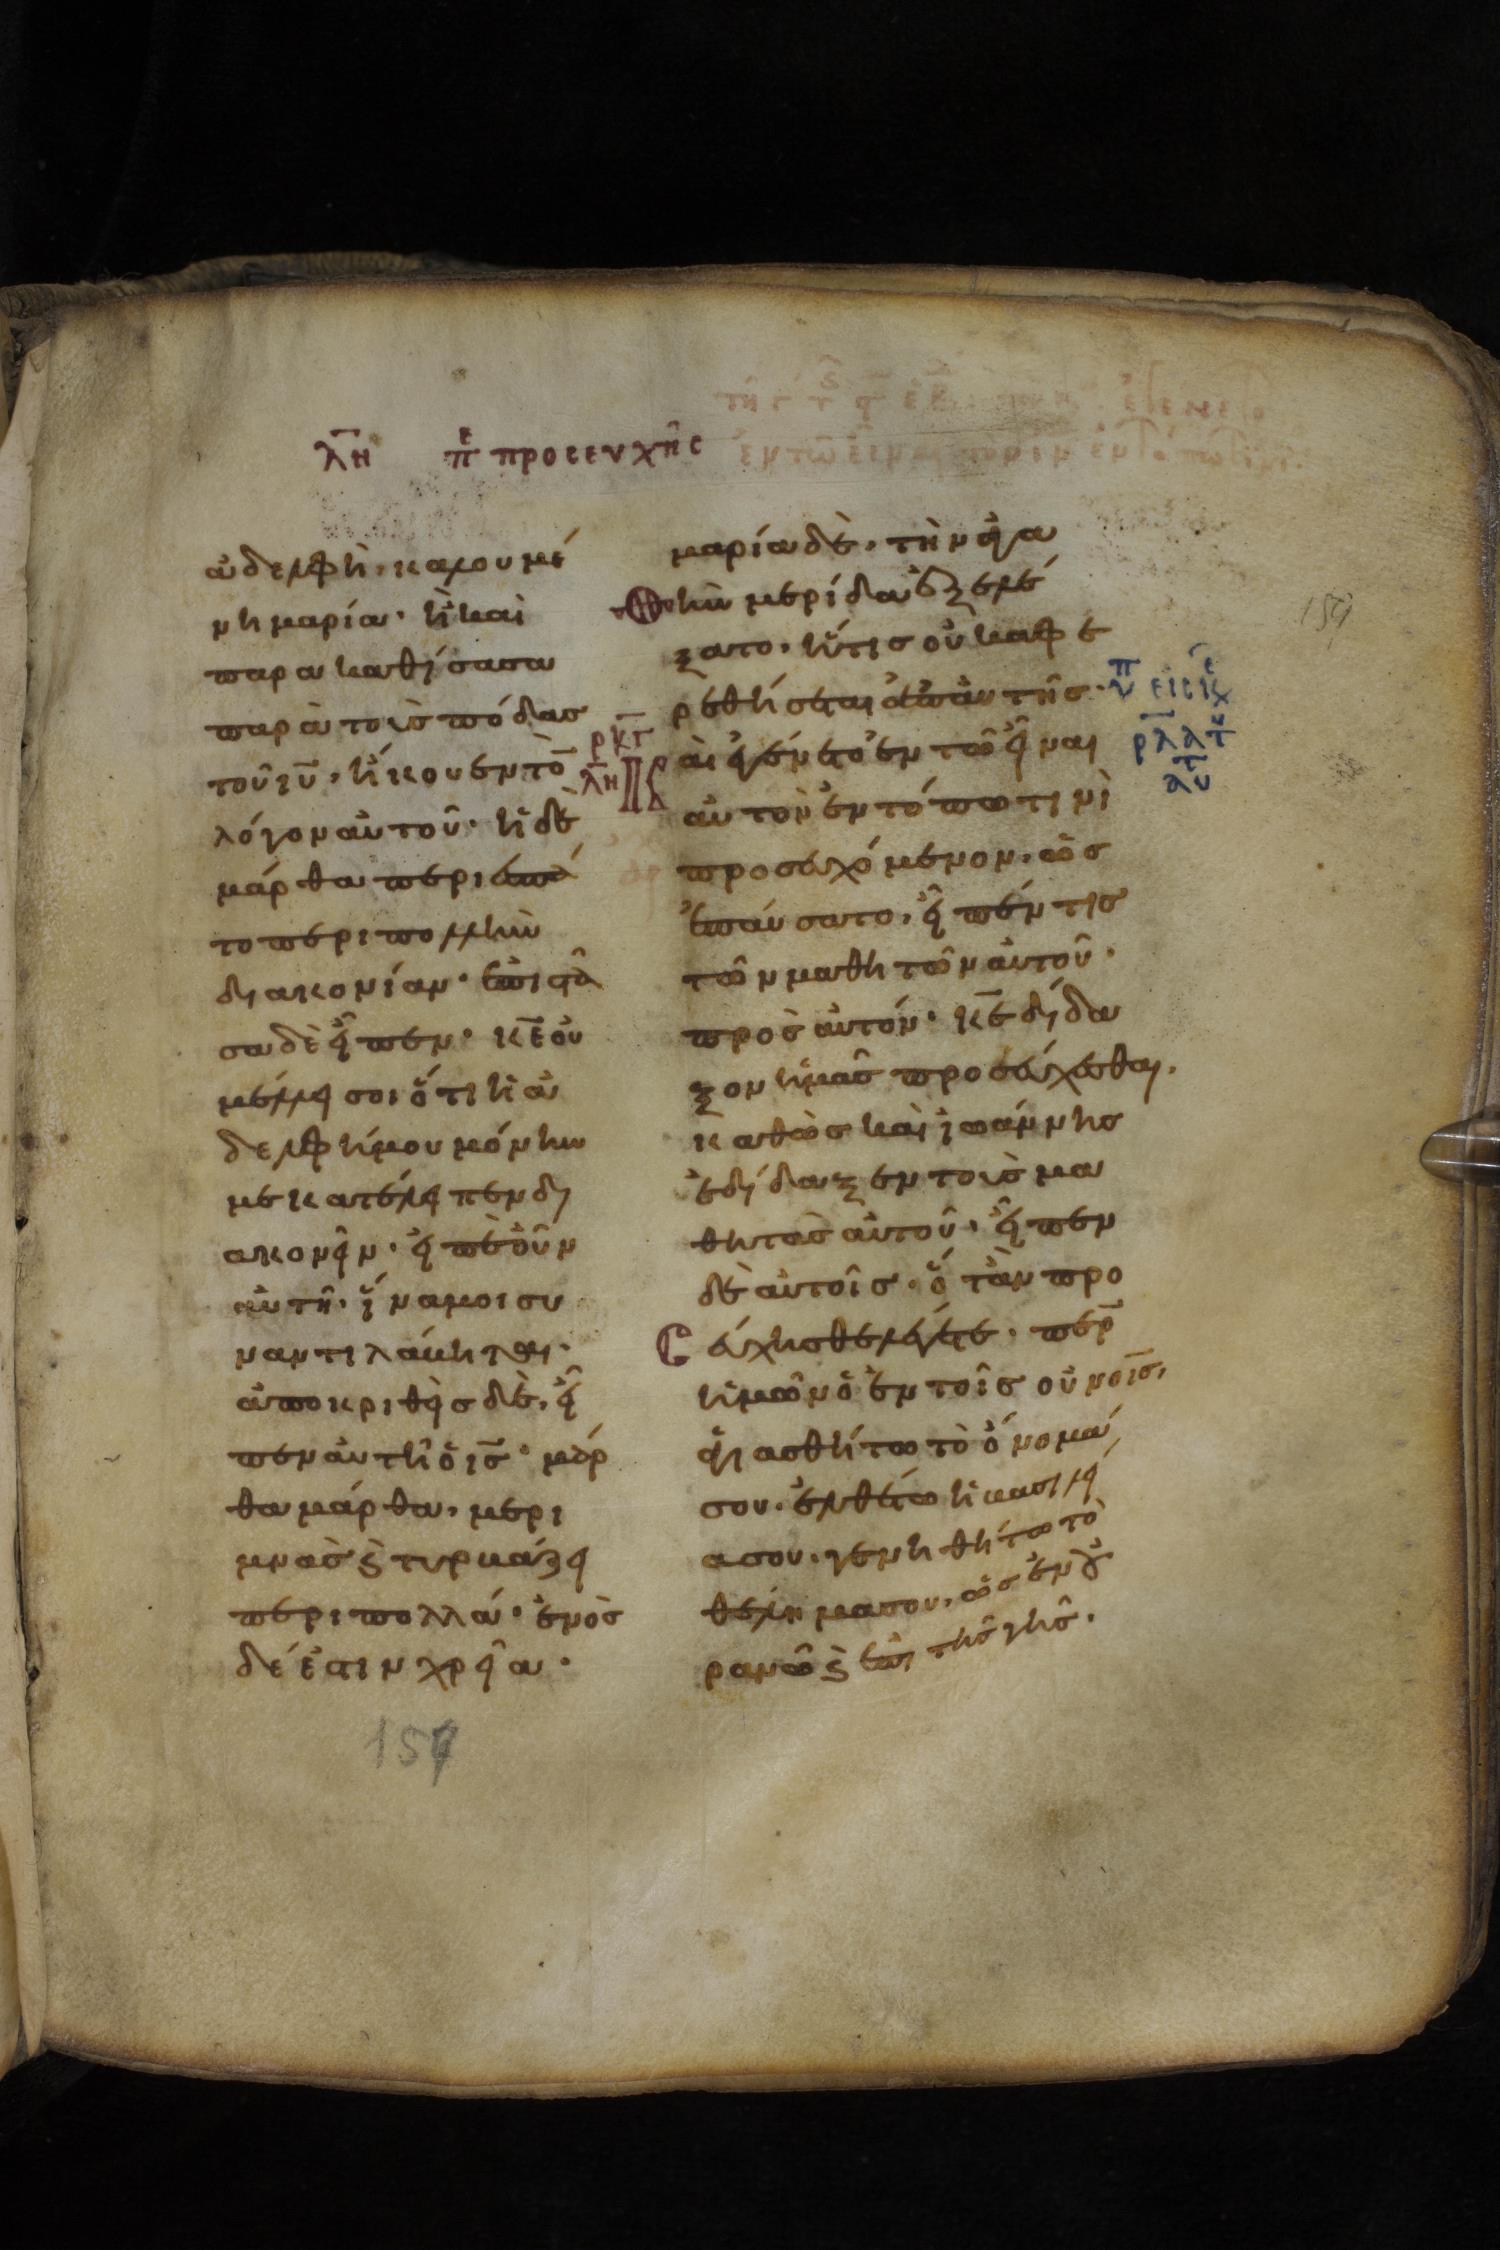 λη πε προσευχῆς
ἀδελφὴ, καλουμέ
νη μαρία· ἡ καὶ
παρακαθίσασα
παρὰ τοὺς πόδας
τοῦ ιυ, ἤκουεν τὸ
λόγον αὐτοῦ· ἡ δὲ
μάρθα περιεσπᾶ
το περὶ πολλὴν
διακονίαν· ἐπιστᾶ
σα δὲ εἶπεν· κε οὐ
μέλλει σοι ὅτι ἡ ἀ
δελφή μου μόνην
με κατέλειπεν δι
ακονεῖν· εἰπὲ οὖν
αὐτῆ· ἵνα μοι συ
ναντιλάβηται·
ἀποκριθεὶς δὲ, εἶ
πεν αὐτῆ ὁ ις· μάρ
θα μάρθα, μερι
μνᾶς ϗ τυρβάζει
περὶ πολλά· ἑνὸς
δέ ἐστιν χρεία·
μαρία δὲ, τὴν ἀγα
θὴν μερίδα ἐξελέ
ξατο, ἥτις οὐκ ἀφε
ρεθήσεται ἀπ' αὐτῆς·
ρκγ
λη
Καὶ ἐγένετο ἐν τῶ εἶναι
αὐτὸν ἐν τόπω τινὶ
προσευχόμενον, ὡς
ἐπαύσατο, εἶπέν τις
τῶν μαθητῶν αὐτοῦ·
πρὸς αὐτόν· κε δίδα
ξον ἡμᾶς προσεύχεσθαι·
καθὼς καὶ ἰωάννης
ἐδίδαξεν τοὺς μα
θητὰς αὐτοῦ· εἶπεν
δὲ αὐτοῖς· ὅταν προ
σεύχησθε λέγετε· περ
ἡμῶν ὁ ἐν τοῖς οὐνοις,
ἁγιασθήτω τὸ ὄνομά
σου· ἐλθέτω ἡ βασιλεί
α σου· γενηθήτω τὸ
θέλημα σου, ὡς ἐν οὐ
ρανῶ ϗ ἐπὶ τῆς γῆς·
159
157